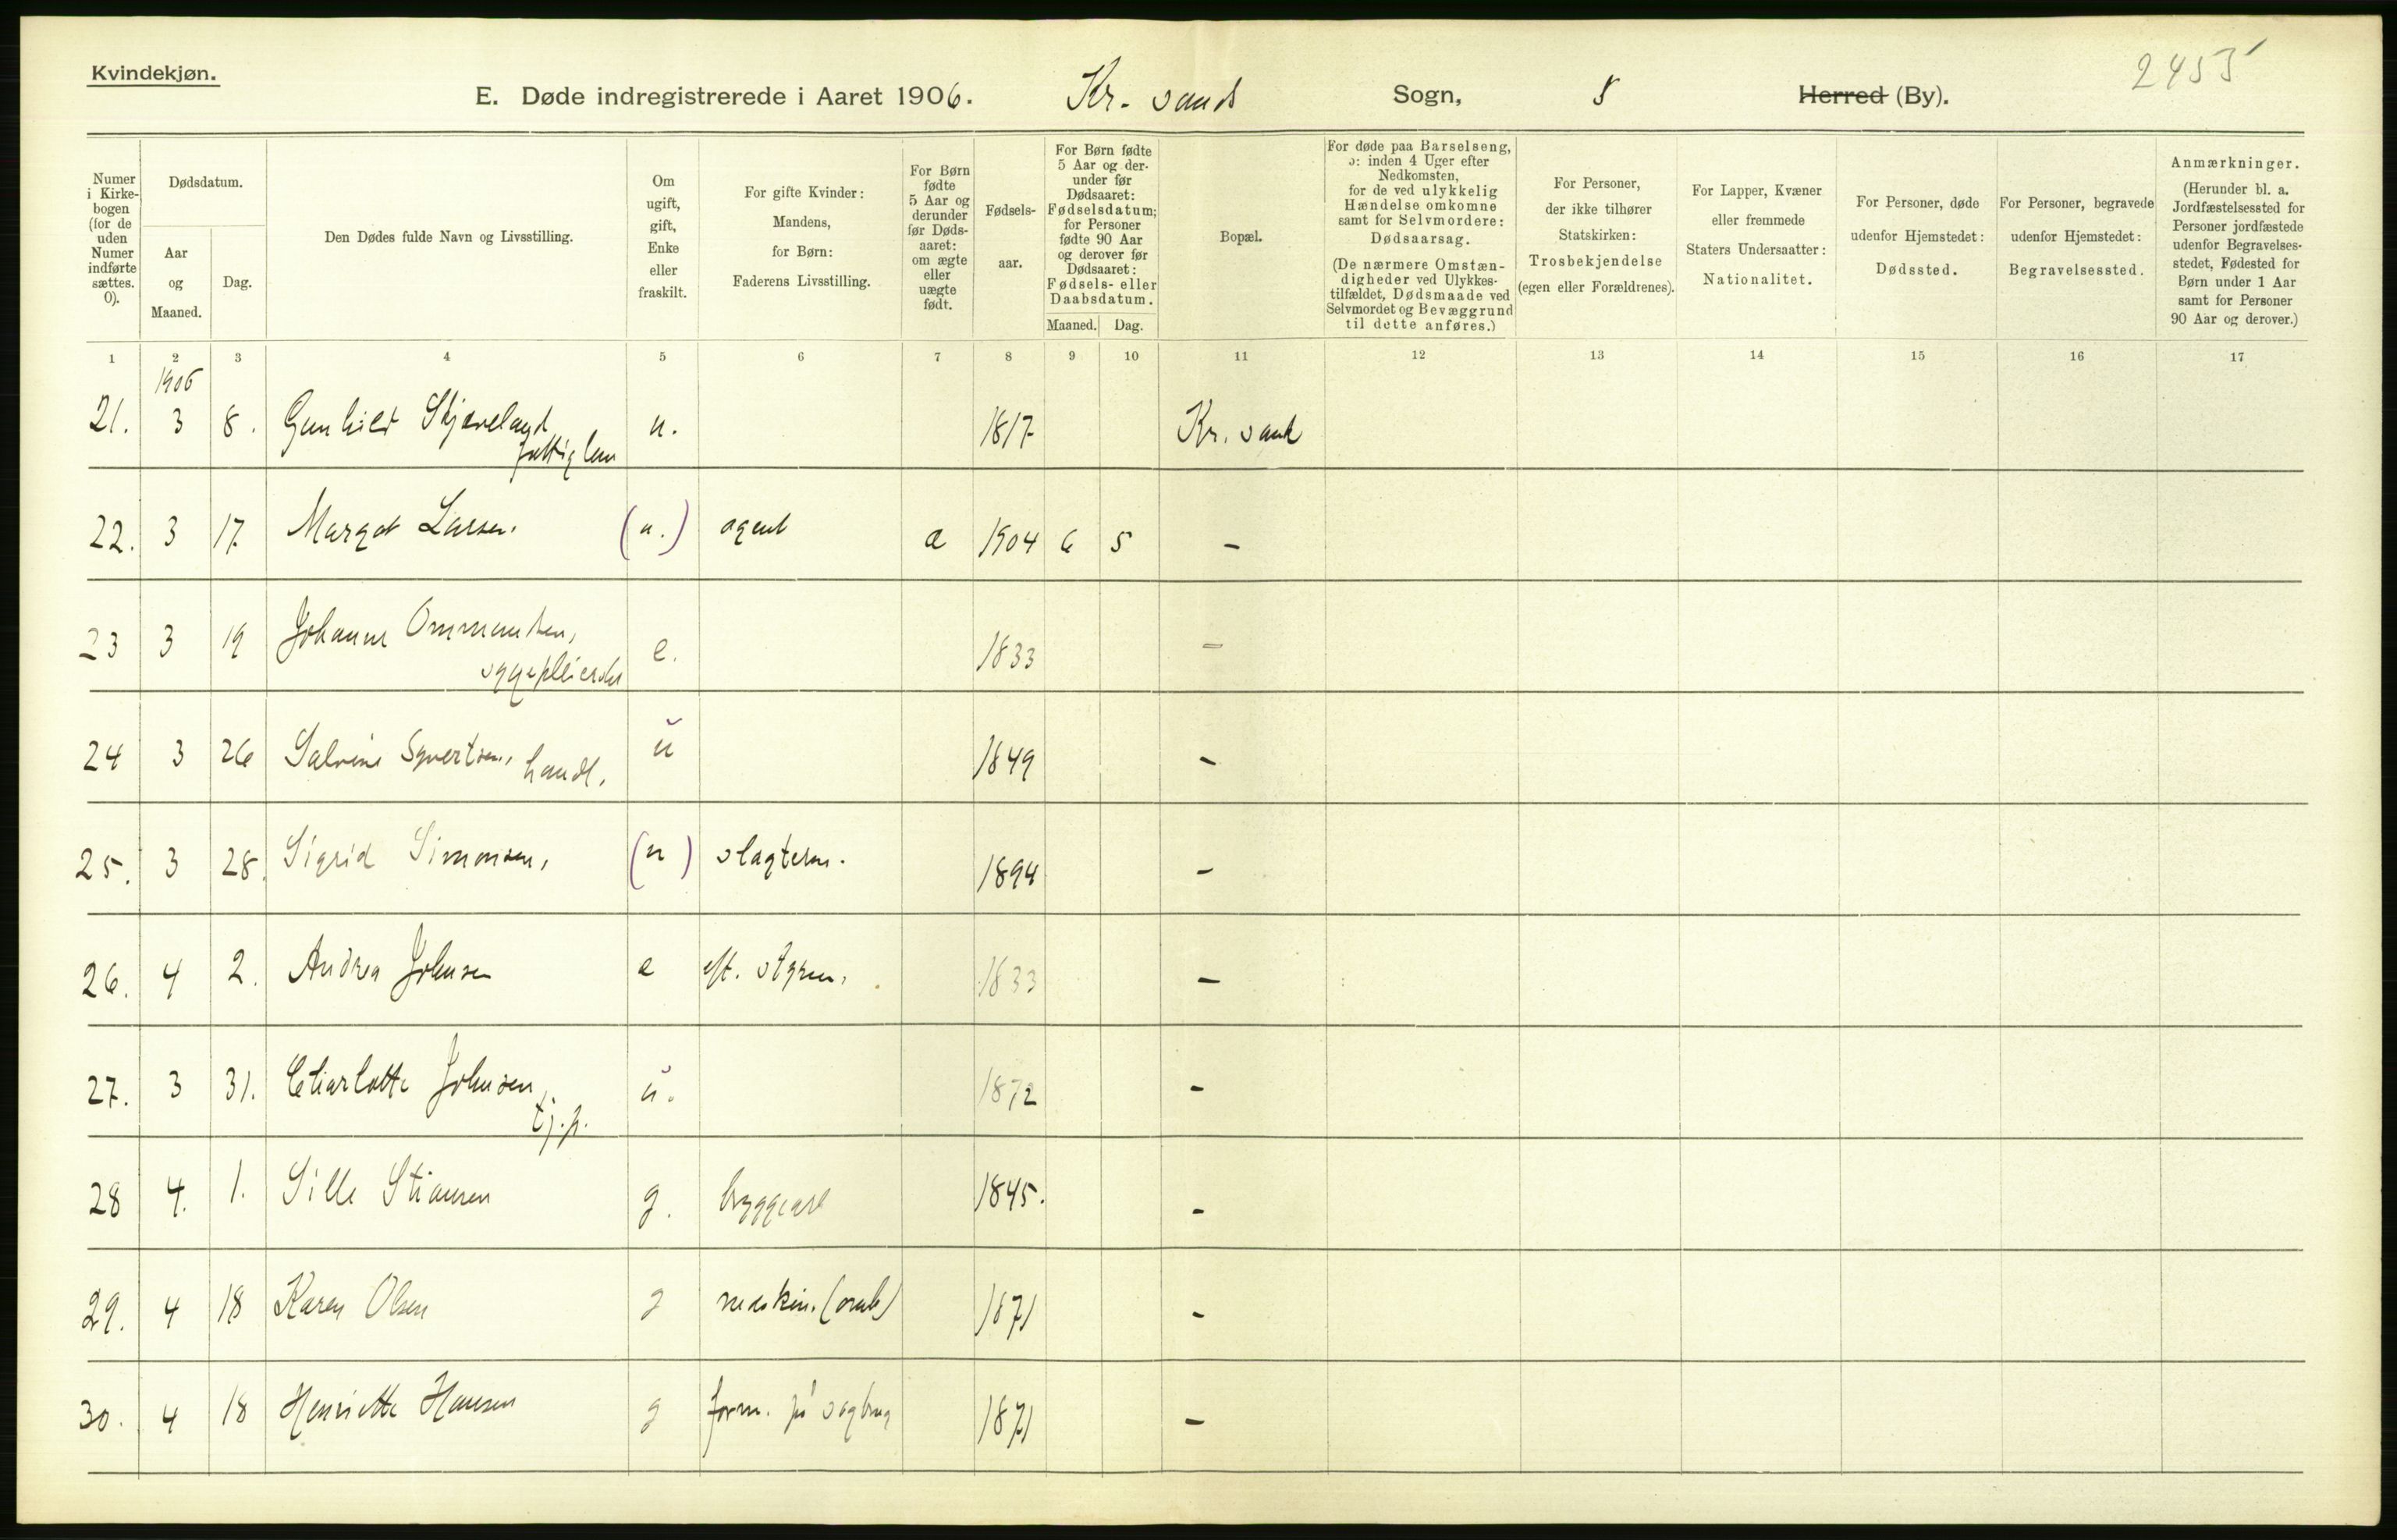 Kvindekjøn.
2455
E. Døde indregistrerede i Aaret 1906. Kr. sands Sogn, S Herred (By).
Numer i Kirkebogen (for de uden Numer indførte sættes. 0).
Dødsdatum.
Aar og Maaned.
Dag.
Den Dødes fulde Navn og Livsstilling.
Om ugift, gift, Enke eller fraskilt.
For gifte Kvinder: Mandens, for Børn: Faderens Livsstilling.
For Børn fødte 5 Aar og derunder før Dødsaaret: om ægte eller uægte født.
Fødselsaar.
For Børn fødte 5 Aar og derunder før Dødsaaret: Fødselsdatum; for Personer fødte 90 Aar og derover før Dødsaaret: Fødsels- eller Daabsdatum.
Maaned. Dag.
Bopæl.
For døde paa Barselseng, ɔ: inden 4 Uger efter Nedkomsten, for de ved ulykkelig Hændelse omkomne samt for Selvmordere: Dødsaarsag. (De nærmere Omstændigheder ved Ulykkestilfældet, Dødsmaade ved Selvmordet og Bevæggrund til dette anføres.)
For Personer, der ikke tilhører Statskirken: Trosbekjendelse (egen eller Forældrenes).
For Lapper, Kvæner eller fremmede Staters Undersaatter: Nationalitet.
For Personer, døde udenfor Hjemstedet: Dødssted.
For Personer, begravede udenfor Hjemstedet: Begravelsessted.
Anmærkninger. (Herunder bl. a. Jordfæstelsessted for Personer jordfæstede udenfor Begravelsesstedet, Fødested for Børn under 1 Aar samt for Personer 90 Aar og derover.)
1 2 3 4 5 6 7 8 9 10 11 12 13 14 15 16 17
1906
21. 3 8. Gunhild Skjæveland u. 1817 Kr. sand
fattiglem
22. 3 17. Margot Larsen. (u.) agent a 1904 6 5 -
23 3 19 Johanne Ommundsen, e. 1833 -
sygepleierske
24 3 26 Salvine Syvertsen, handl. u 1849 -
25. 3 28. Sigrid Simonsen, (u) slagterm. 1894 -
26. 4 2. Andrea Johnsen e eft. styrm. 1833 -
27. 3 31. Charlotte Johnsen, u. 1872 -
tj.p.
28 4. 1. Sille Stiansen g. bryggearb 1845. -
29. 4 18 Karen Olsen g maskin. (omb) 1871 -
30. 4 18 Henriette Hansen g form. på sagbrug 1871 -